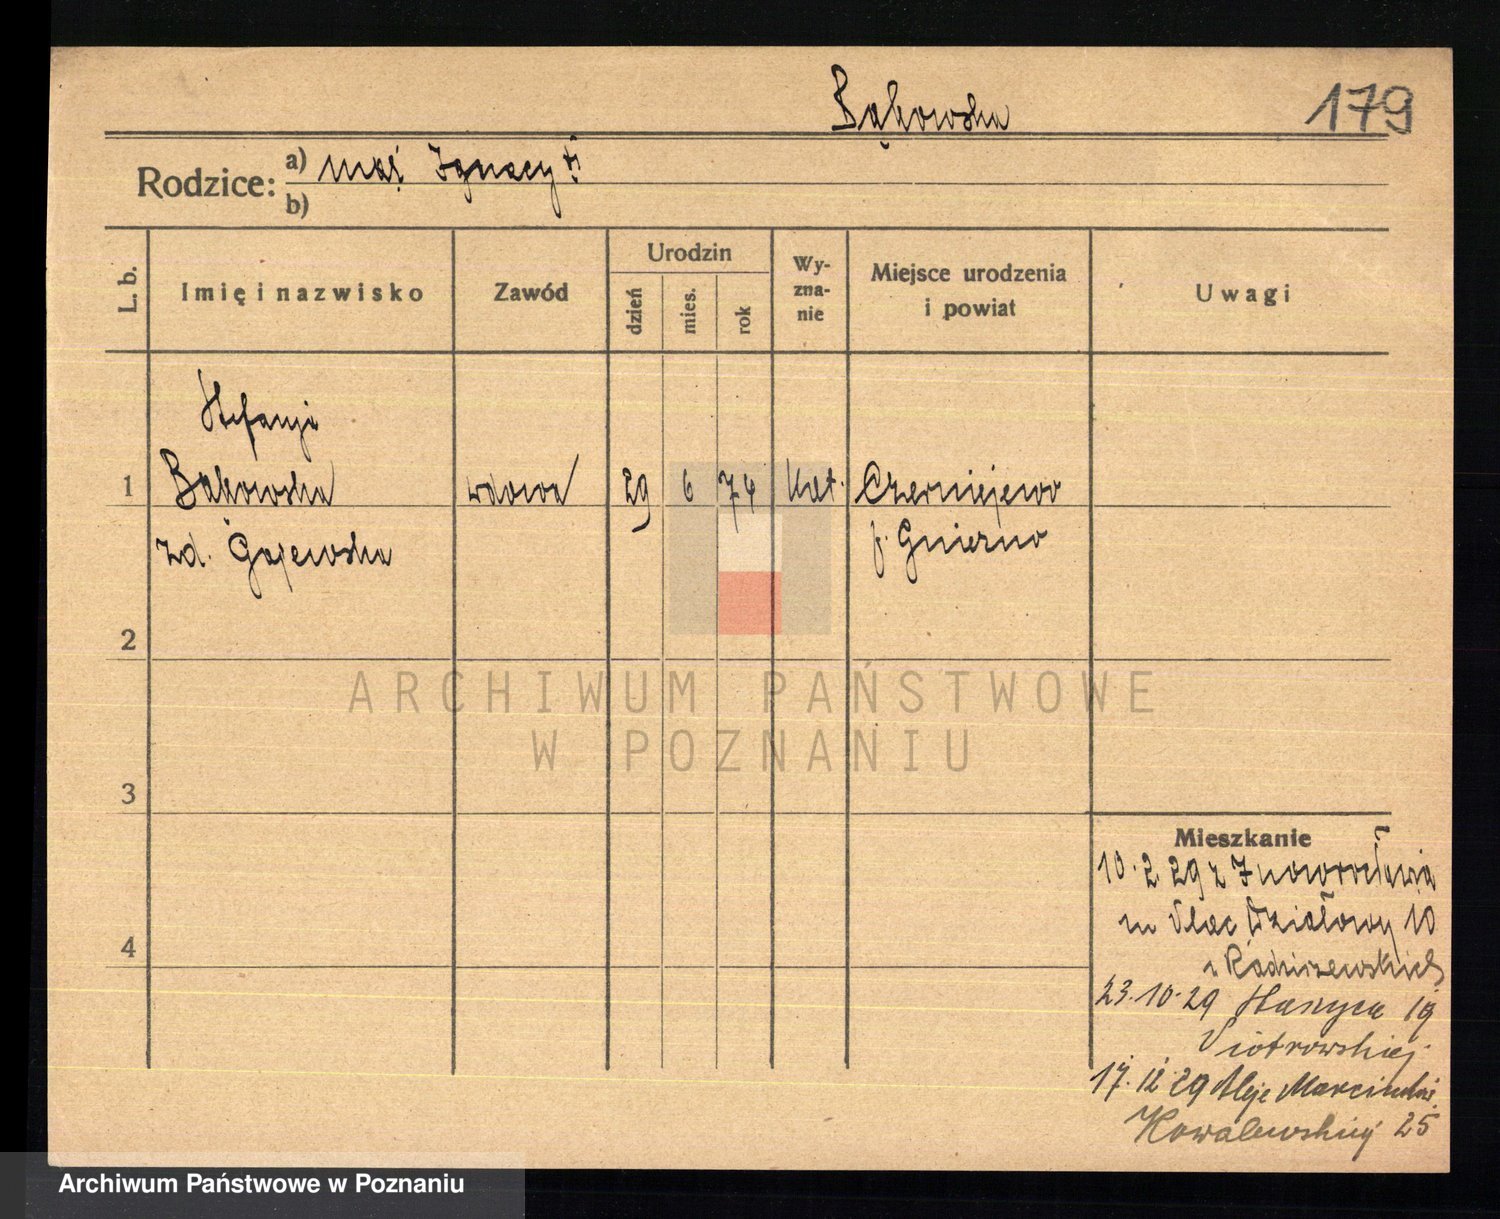 Bąkowska
179
Rodzice: a) mąż Ignacy
b)
L. b.
Imię i nazwisko
Zawód
Urodzin
dzień
mies.
rok
Wy-
zna-
nie
Miejsce urodzenia
i powiat
Uwagi
Stefanja
1 Bąkowska wdowa 29 6 74 kat. Czerniejewo
zd. Gajewska p. Gniezno
2
3
4
Mieszkanie
10.2.29 z Inowrocławia
m Plac Działowy 10
u Radziszewskich
23.10.29 Staszyca 19
Piotrowskiej
17.12.29 Aleje Marcinkow.
Kowalewskiej 25
ARCHIWUM PAŃSTWOWE
W POZNANIU
Archiwum Państwowe w Poznaniu